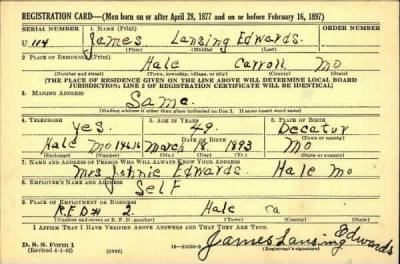 REGISTRATION CARD—(Men born on or after April 28, 1877 and on or before February 16, 1897)
SERIAL NUMBER 1. NAME (Print) ORDER NUMBER
U 114 James Lansing Edwards.
(First) (Middle) (Last)
2. PLACE OF RESIDENCE (Print)
Hale Carroll Mo
(Number and street) (Town, township, village, or city) (County) (State)
[THE PLACE OF RESIDENCE GIVEN ON THE LINE ABOVE WILL DETERMINE LOCAL BOARD
JURISDICTION; LINE 2 OF REGISTRATION CERTIFICATE WILL BE IDENTICAL]
3. MAILING ADDRESS
Same
[Mailing address if other than place indicated on line 2. If same insert word same]
4. TELEPHONE 5. AGE IN YEARS 6. PLACE OF BIRTH
Yes. 49. Decatur
DATE OF BIRTH (Town or county)
Hale Mo March 18. 1893 Mo
(Exchange) (Number) (Mo.) (Day) (Yr.) (State or country)
7. NAME AND ADDRESS OF PERSON WHO WILL ALWAYS KNOW YOUR ADDRESS
Mrs Johnie Edwards. Hale Mo
8. EMPLOYER'S NAME AND ADDRESS
Self
9. PLACE OF EMPLOYMENT OR BUSINESS
R.F.D # 2. Hale ca
(Number and street or R. F. D. number) (Town) (County) (State)
I AFFIRM THAT I HAVE VERIFIED ABOVE ANSWERS AND THAT THEY ARE TRUE.
D. S. S. Form 1
(Revised 4-1-42) (over)
James Lansing Edwards
(Registrant's signature)